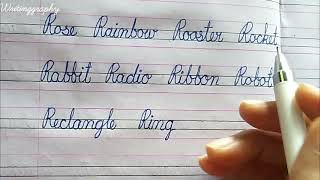 Writinggraphy
Rose Rainbow Rooster Rocket
Rabbit Radio Ribbon Robot
Rectangle Ring